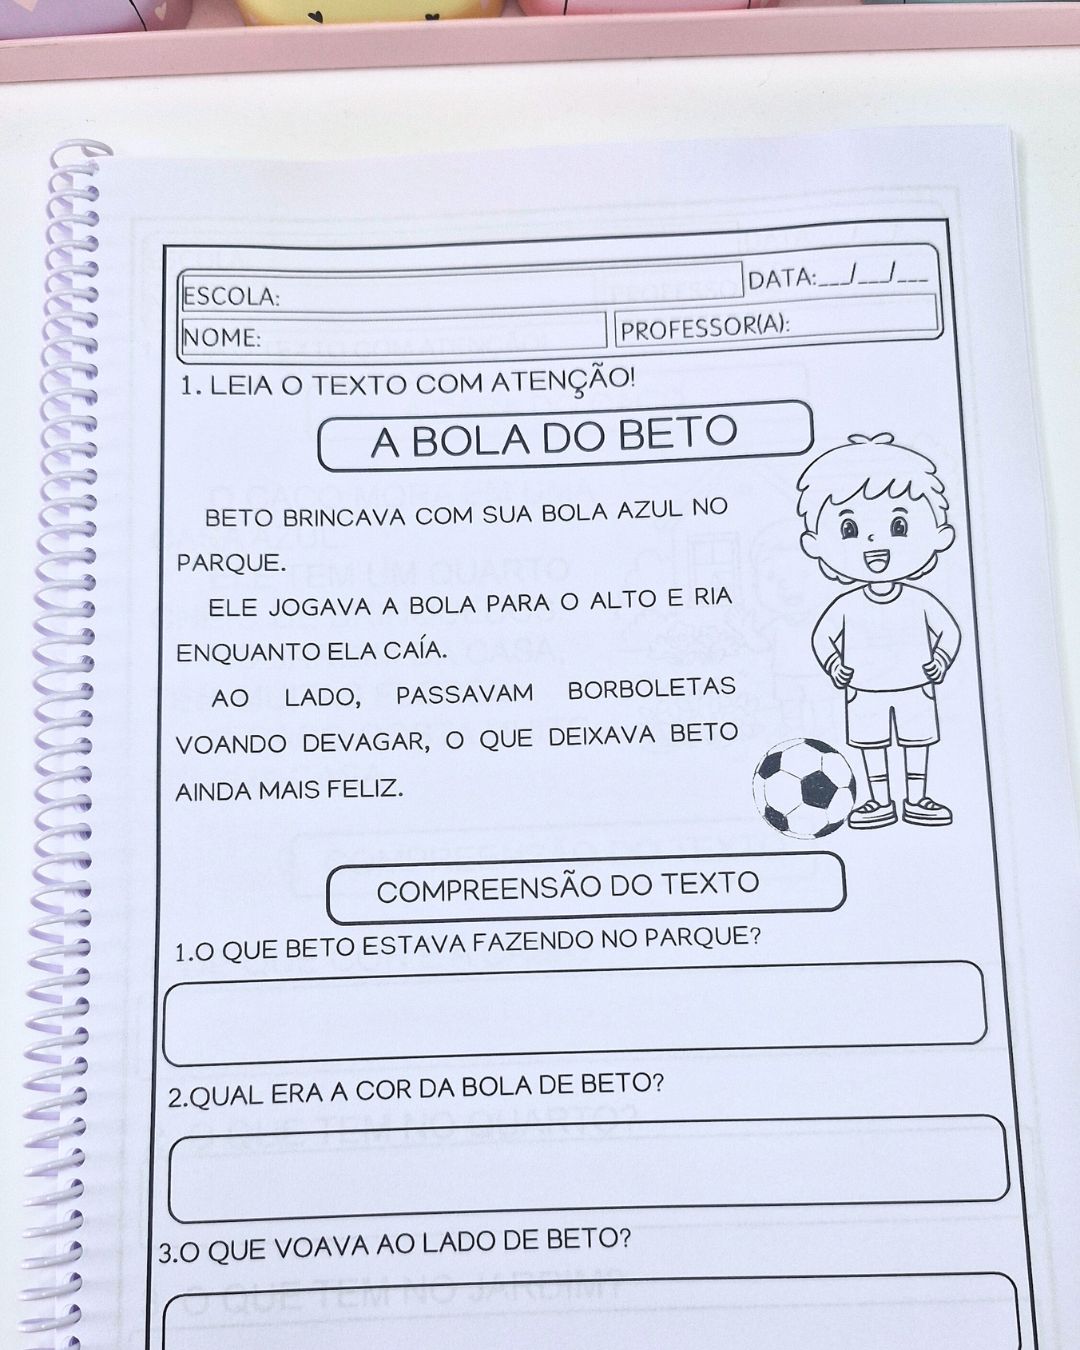 ESCOLA:
DATA:___/___/___
NOME:
PROFESSOR(A):
1. LEIA O TEXTO COM ATENÇÃO!
A BOLA DO BETO
BETO BRINCAVA COM SUA BOLA AZUL NO
PARQUE.
ELE JOGAVA A BOLA PARA O ALTO E RIA
ENQUANTO ELA CAÍA.
AO LADO, PASSAVAM BORBOLETAS
VOANDO DEVAGAR, O QUE DEIXAVA BETO
AINDA MAIS FELIZ.
COMPREENSÃO DO TEXTO
1.O QUE BETO ESTAVA FAZENDO NO PARQUE?
2.QUAL ERA A COR DA BOLA DE BETO?
3.O QUE VOAVA AO LADO DE BETO?